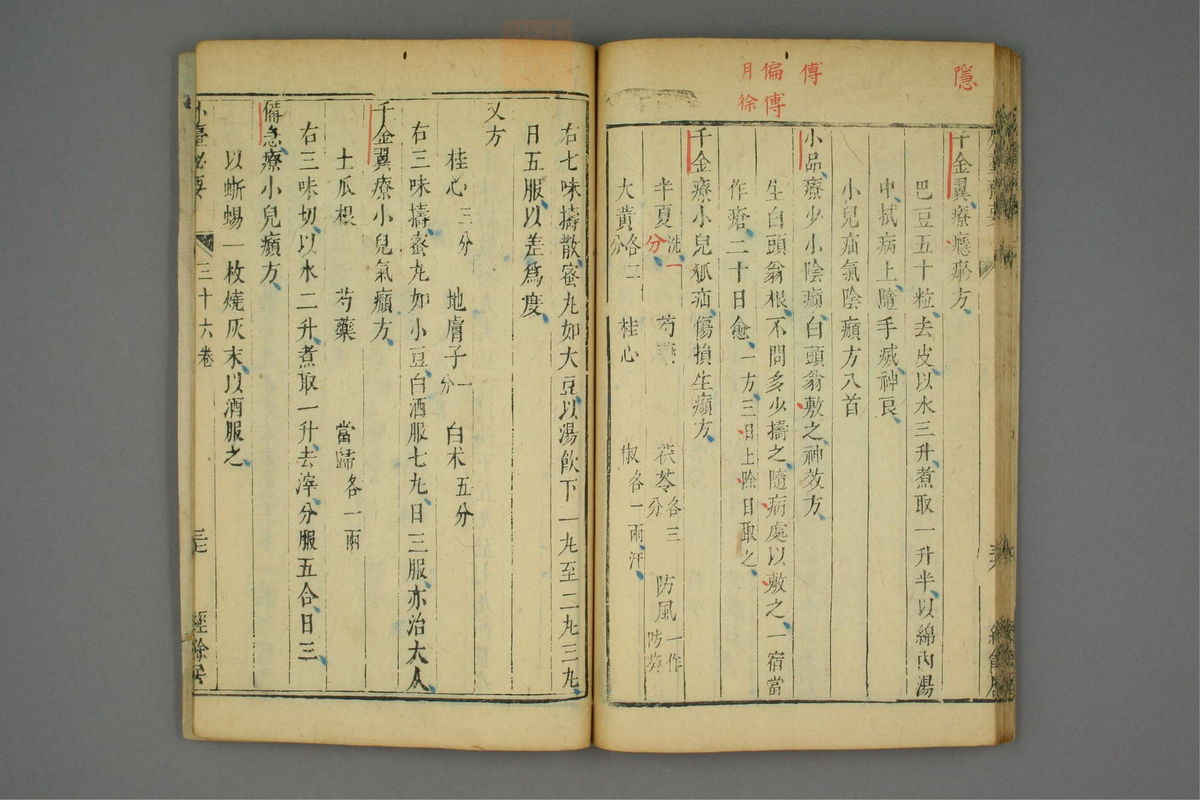 隱
傅
偏傅
月徐
千金翼療癮㾦方
巴豆五十粒去皮以水三升煮取一升半以綿內湯
中拭病上隨手滅神良
小兒疝氣陰㿗方八首
小品療少小陰㿗白頭翁敷之神效方
生白頭翁根不問多少擣之隨病處以敷之一宿當
作瘡二十日愈一方三日上除日取之
千金療小兒狐疝傷損生㿗方
半夏洗一分 芍藥 茯苓各三分 防風一作防葵
大黃各二分 桂心 椒各一兩汗
右七味擣散蜜丸如大豆以湯飲下一丸至二丸三丸
日五服以差爲度
又方
桂心三分 地膚子一分 白朮五分
右三味擣蜜丸如小豆白酒服七丸日三服亦治大人
千金翼療小兒氣㿗方
土瓜根 芍藥 當歸各一兩
右三味切以水二升煮取一升去滓分服五合日三
備急療小兒㿗方
以蜥蜴一枚燒灰末以酒服之
外臺祕要 三十六卷 三七 經餘居